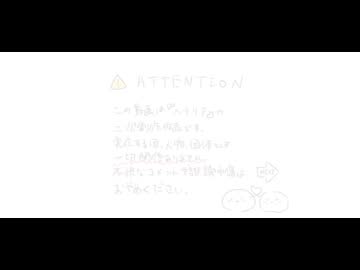 ATTENTION
この動画は『ヘタリア』の
二次創作作品です。
実在する国、人物、団体とは
一切関係ありません。
不快なコメントや誹謗中傷は
おやめください。